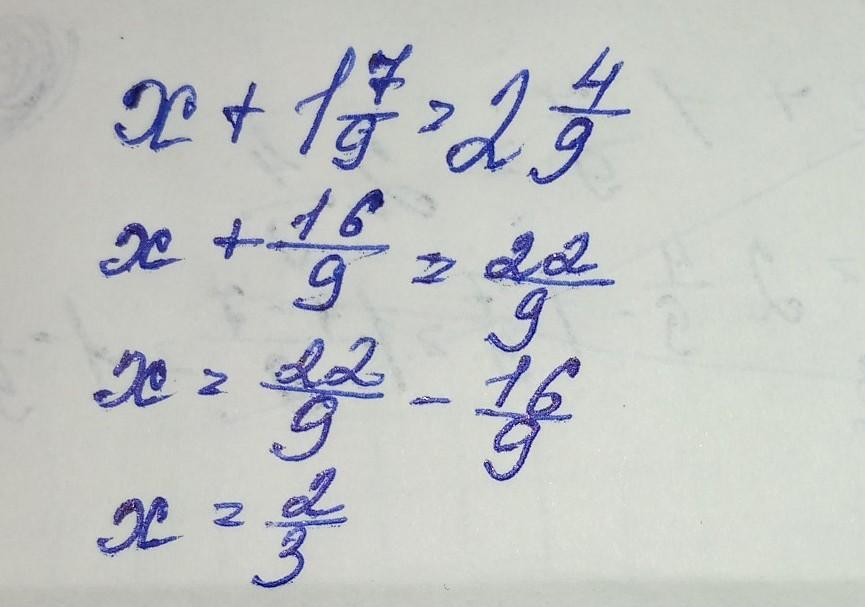 x + 1 7/9 = 2 4/9
x + 16/9 = 22/9
x = 22/9 - 16/9
x = 2/3